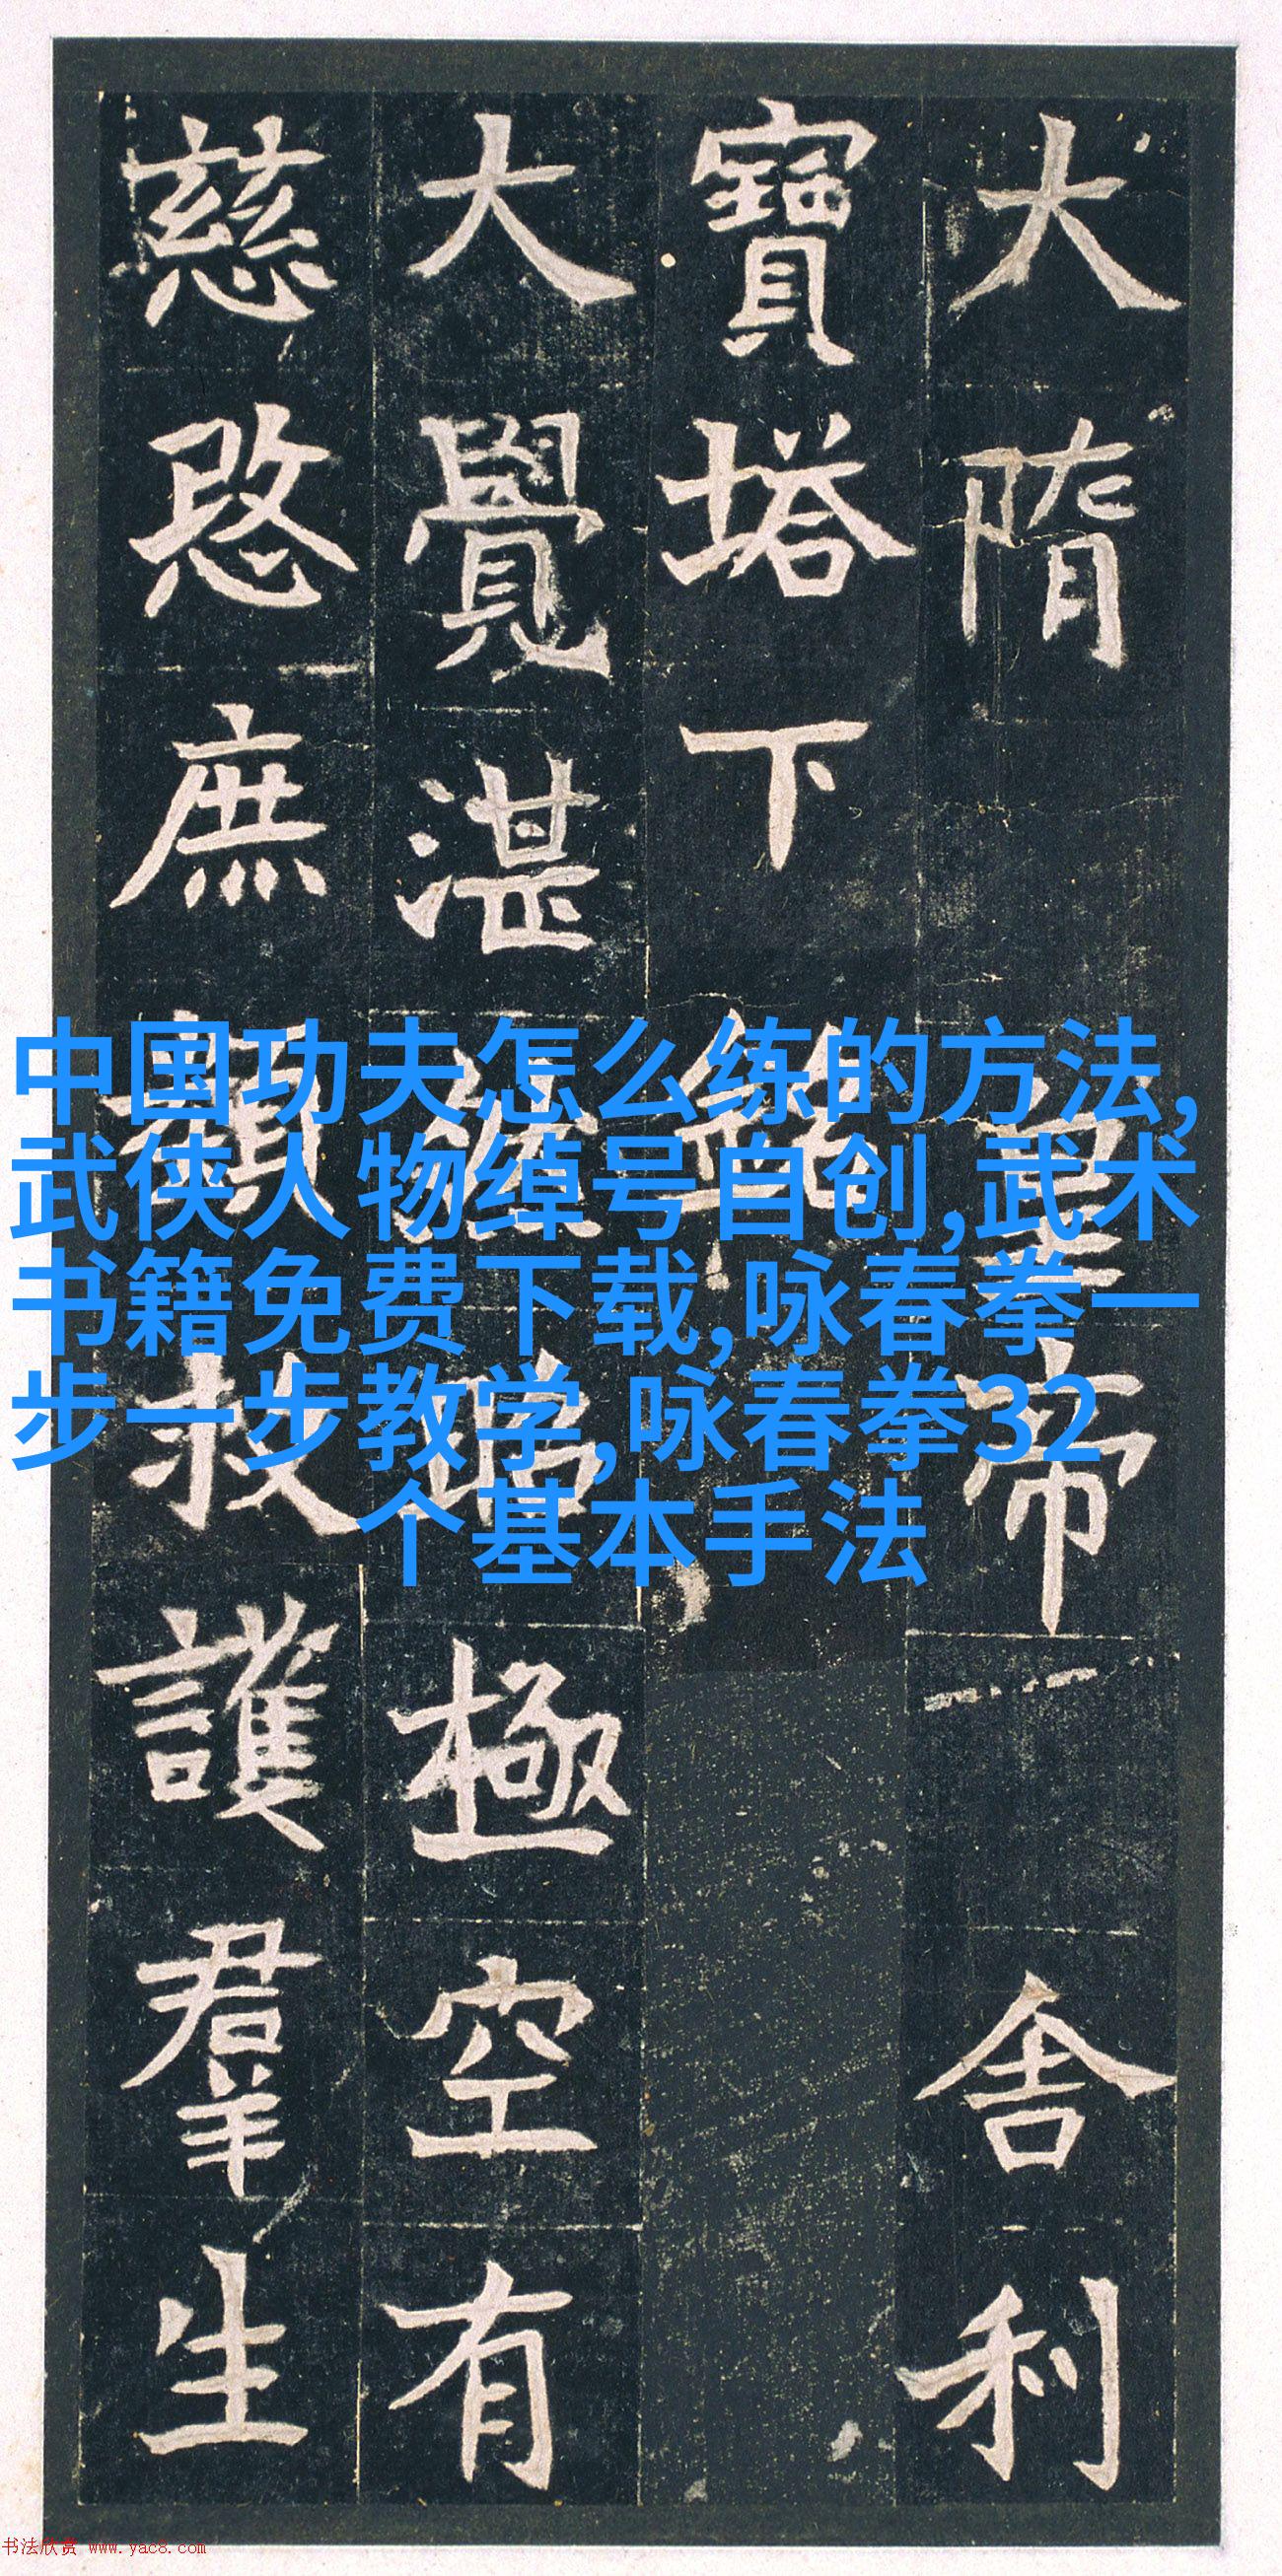 大隋皇帝舍利
寶塔下銘
大覺湛昭極空有
慈愍庶類救護羣生
中国功夫怎么练的方法,
武侠人物绰号自创,武术
书籍免费下载,咏春拳一
步一步教学,咏春拳32
个基本手法
书法欣赏 www.yac8.com